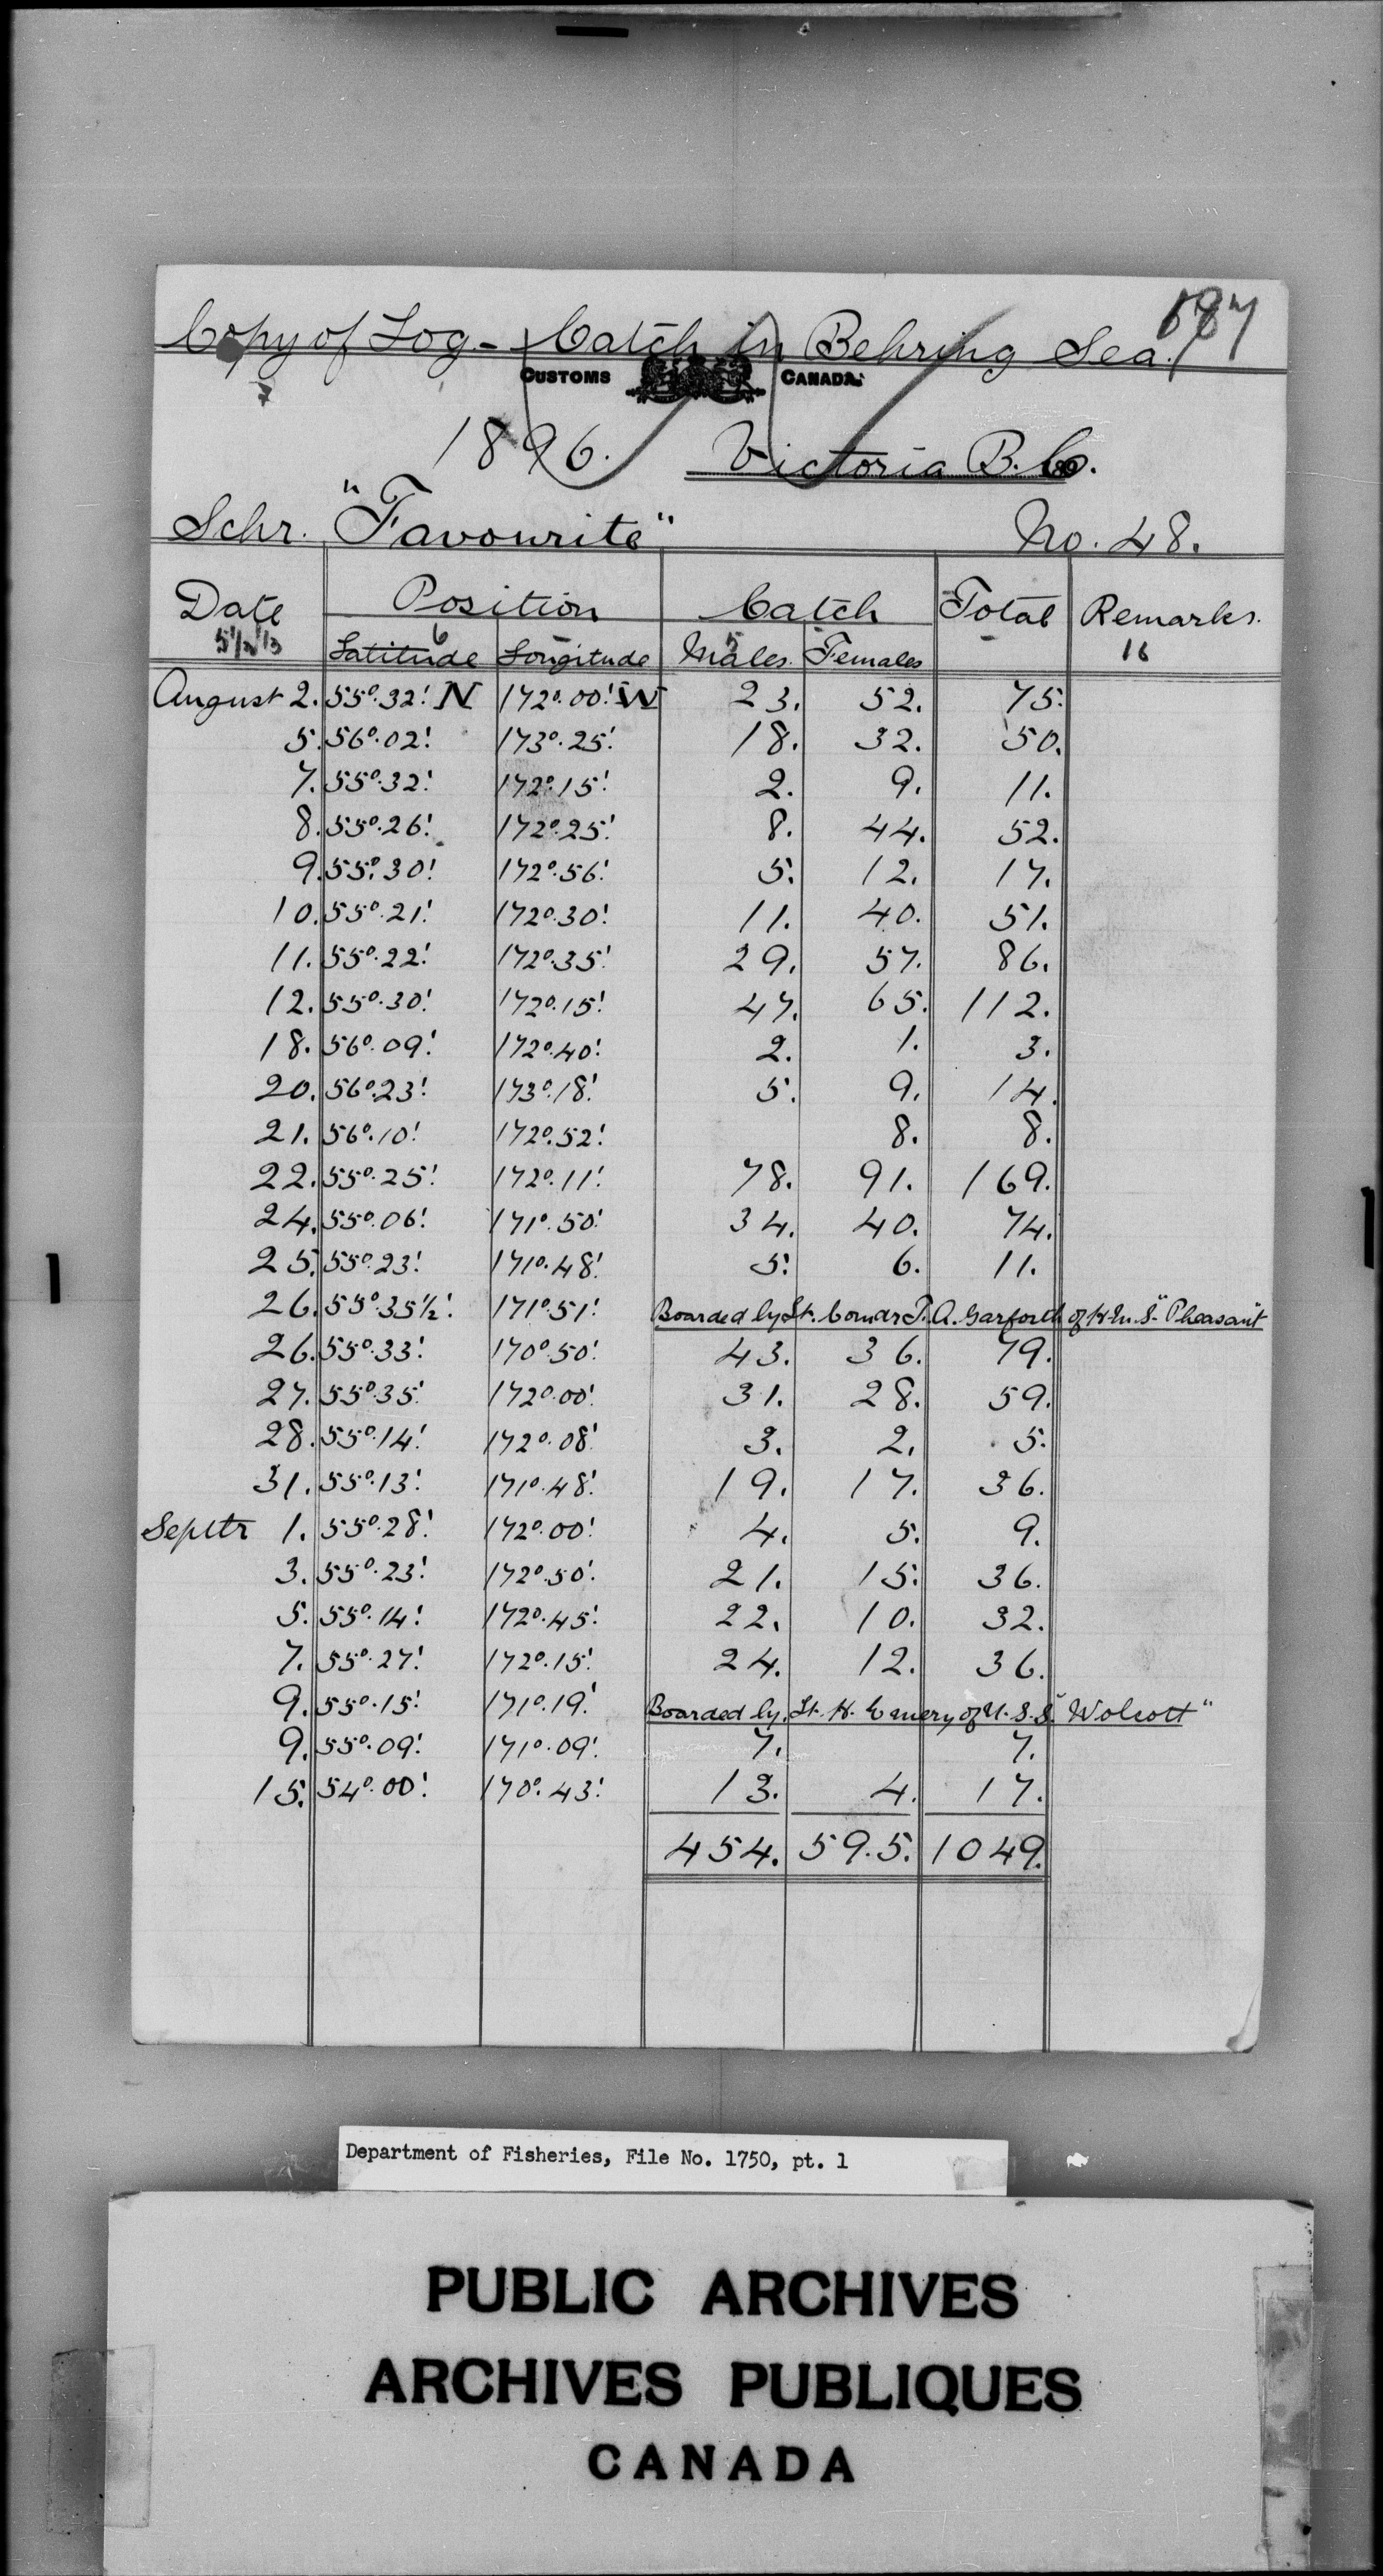 687
Copy of Log - Catch in Behring Sea.
CUSTOMS CANADA.
1896. Victoria B.C.
Schr. "Favourite" No. 48.
Date Position Catch Total Remarks.
Latitude Longitude Males. Females
August 2. 55°.32' N 172°.00' W 23. 52. 75.
5. 56°.02' 173°.25' 18. 32. 50.
7. 55°.32' 172°.15' 2. 9. 11.
8. 55°.26' 172°.25' 8. 44. 52.
9. 55°.30' 172°.56' 5. 12. 17.
10. 55°.21' 172°.30' 11. 40. 51.
11. 55°.22' 172°.35' 29. 57. 86.
12. 55°.30' 172°.15' 47. 65. 112.
18. 56°.09' 172°.40' 2. 1. 3.
20. 56°.23' 173°.18' 5. 9. 14.
21. 56°.10' 172°.52' 8. 8.
22. 55°.25' 172°.11' 78. 91. 169.
24. 55°.06' 171°.50' 34. 40. 74.
25. 55°.23' 171°.48' 5. 6. 11.
26. 55°.35½' 171°.51' Boarded by Lt. Comdr T. A. Garforth of H.M.S. "Pheasant"
26. 55°.33' 170°.50' 43. 36. 79.
27. 55°.35' 172°.00' 31. 28. 59.
28. 55°.14' 172°.08' 3. 2. 5.
31. 55°.13' 171°.48' 19. 17. 36.
Septr 1. 55°.28' 172°.00' 4. 5. 9.
3. 55°.23' 172°.50' 21. 15. 36.
5. 55°.14' 172°.45' 22. 10. 32.
7. 55°.27' 172°.15' 24. 12. 36.
9. 55°.15' 171°.19' Boarded by Lt. H. Emery of U.S.S. "Wolcott"
9. 55°.09' 171°.09' 7. 7.
15. 54°.00' 170°.43' 13. 4. 17.
454. 595. 1049.
Department of Fisheries, File No. 1750, pt. 1
PUBLIC ARCHIVES
ARCHIVES PUBLIQUES
CANADA